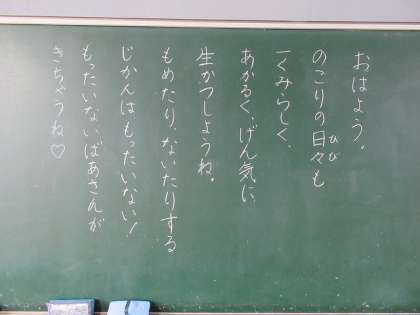 おはよう。
のこりの日々も
ひび
一くみらしく、
あかるく、げん気に
生かつしようね。
もめたり、ないたりする
じかんはもったいない!
もったいないばあさんが
きちゃうね♡